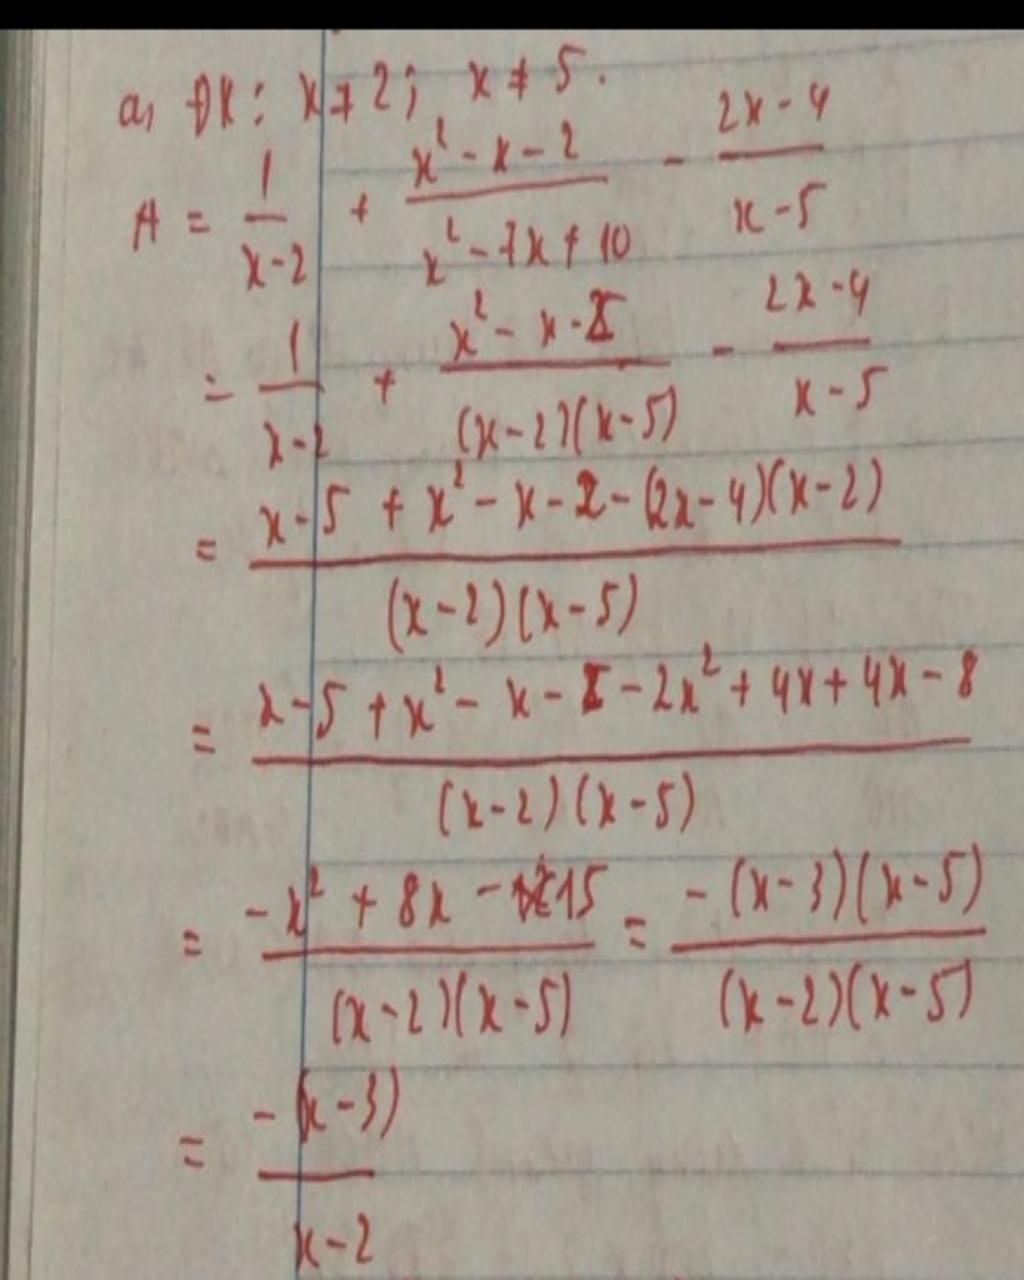 a, ĐK: x ≠ 2; x ≠ 5.
A = 1/(x-2) + (x² - x - 2)/(x² - 7x + 10) - (2x - 4)/(x - 5)
= 1/(x-2) + (x² - x - 2)/((x-2)(x-5)) - (2x-4)/(x-5)
= (x-5 + x² - x - 2 - (2x-4)(x-2))/((x-2)(x-5))
= (x-5 + x² - x - 2 - 2x² + 4x + 4x - 8)/((x-2)(x-5))
= (-x² + 8x - 15)/((x-2)(x-5)) = (-(x-3)(x-5))/((x-2)(x-5))
= (-(x-3))/(x-2)